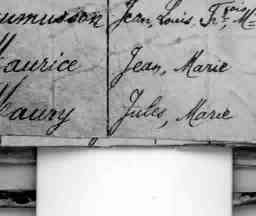 umusson Jean, Louis Fr.çois M
Maurice Jean, Marie
Maury Jules, Marie